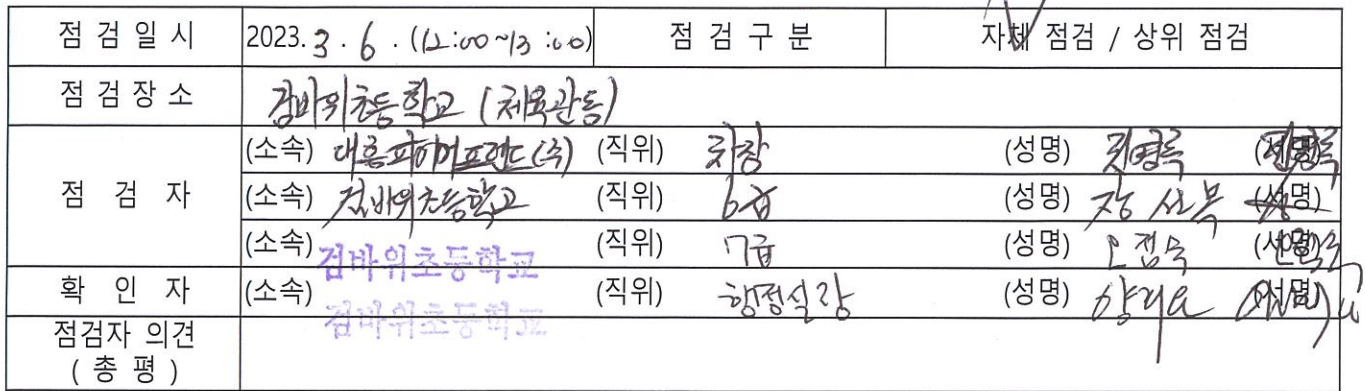 점 검 일 시 2023. 3 . 6 . (12:00~13:00) 점 검 구 분 자체 점검 / 상위 점검
점 검 장 소 검바위초등학교 (체육관동)
(소속) 대흥파이어프랜드(주) (직위) 차장 (성명) 명록 (서명)
점 검 자 (소속) 검바위초등학교 (직위) 6급 (성명) 장 (서명)
(소속) 검바위초등학교 (직위) 7급 (성명) 오점숙 (서명)
확 인 자 (소속) 검바위초등학교 (직위) 행정실장 (성명) (서명)
점검자 의견
( 총 평 )